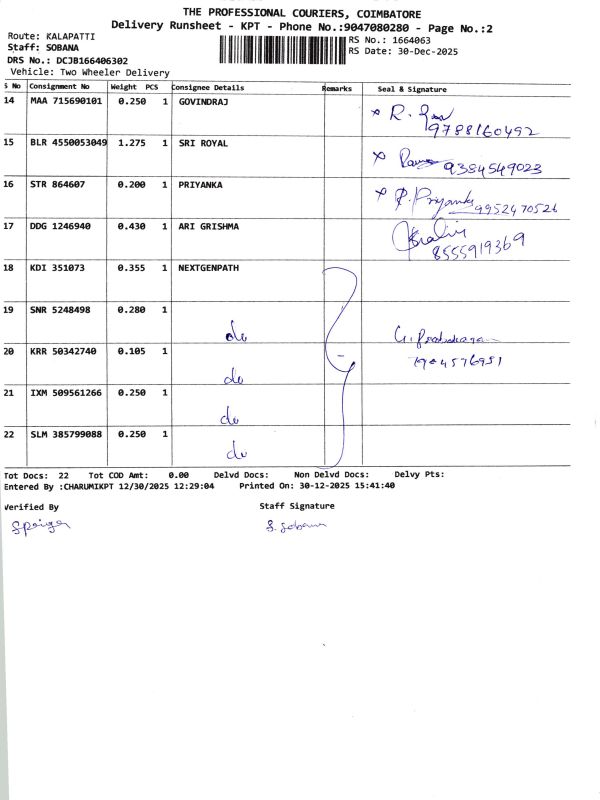 THE PROFESSIONAL COURIERS, COIMBATORE
Delivery Runsheet - KPT - Phone No.:9047080280 - Page No.:2
Route: KALAPATTI
Staff: SOBANA
DRS No.: DCJB166406302
Vehicle: Two Wheeler Delivery
RS No.: 1664063
RS Date: 30-Dec-2025
S No Consignment No Weight PCS Consignee Details Remarks Seal & Signature
14 MAA 715690101 0.250 1 GOVINDRAJ
9788160492
15 BLR 4550053049 1.275 1 SRI ROYAL
9384549023
16 STR 864607 0.200 1 PRIYANKA R. Priyanka
9952470526
17 DDG 1246940 0.430 1 ARI GRISHMA
8555919369
18 KDI 351073 0.355 1 NEXTGENPATH
19 SNR 5248498 0.280 1 do
20 KRR 50342740 0.105 1 do
21 IXM 509561266 0.250 1 do
22 SLM 385799088 0.250 1 do
Tot Docs: 22 Tot COD Amt: 0.00 Delvd Docs: Non Delvd Docs: Delvy Pts:
Entered By :CHARUMIKPT 12/30/2025 12:29:04 Printed On: 30-12-2025 15:41:40
Verified By Staff Signature
S. Sobana